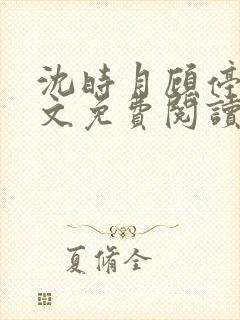 沈時月顧停
文免費閱讀
夏脩全